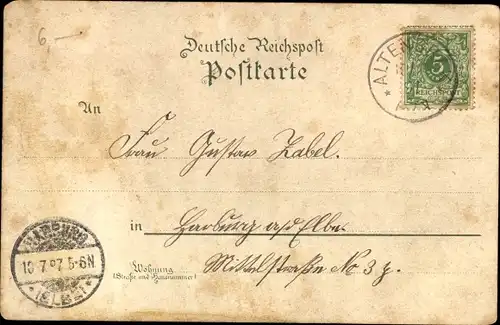 6,-
Deutsche Reichspost
Postkarte
ALTEN
5
REICHSPOST
An
Frau Gustav Zabel.
in Harburg a/d Elbe.
Wohnung
(Straße und Hausnummer)
Mittelstraße No 3
HARBURG
10.7.97.5-6N
*(ELBE)*